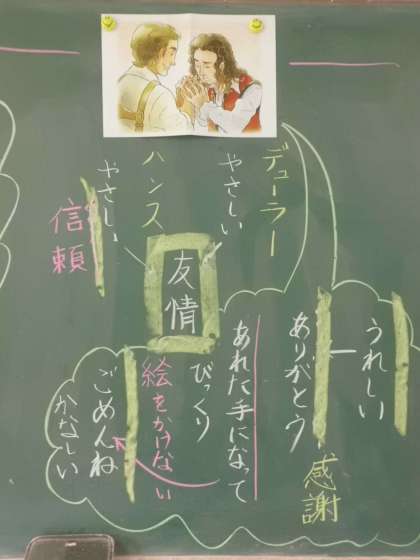 デューラー
やさしい
ハンス
やさしい
信頼
友情
うれしい
ありがとう
感謝
あれた手になって
びっくり
絵をかけない
ごめんね
かなしい